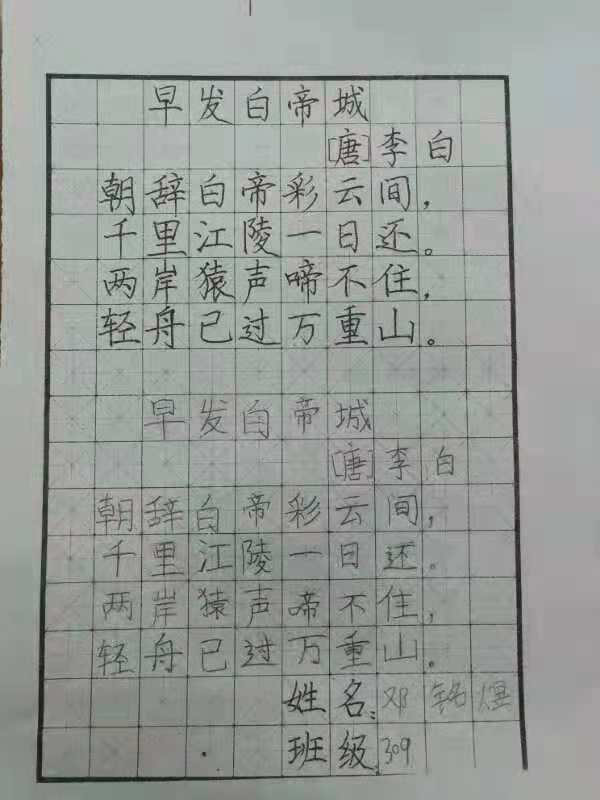 早发白帝城
[唐]李白
朝辞白帝彩云间，
千里江陵一日还。
两岸猿声啼不住，
轻舟已过万重山。
早发白帝城
[唐]李白
朝辞白帝彩云间，
千里江陵一日还。
两岸猿声啼不住，
轻舟已过万重山。
姓名：邓铭
班级 309